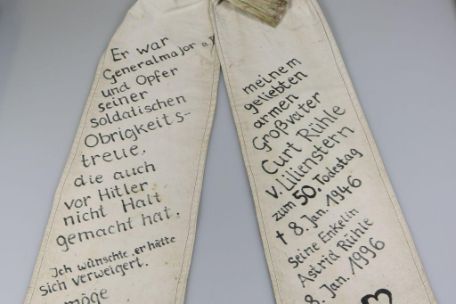 Er war
Generalmajor a.
und Opfer
seiner
soldatischen
Obrigkeits-
treue,
die auch
vor Hitler
nicht Halt
gemacht hat.
Ich wünschte, er hätte
sich verweigert.
möge
meinem
geliebten
armen
Großvater
Curt Rühle
v. Lilienstern
zum 50. Todestag
† 8. Jan. 1946
Seine Enkelin
Astrid Rühle
8. Jan. 1996